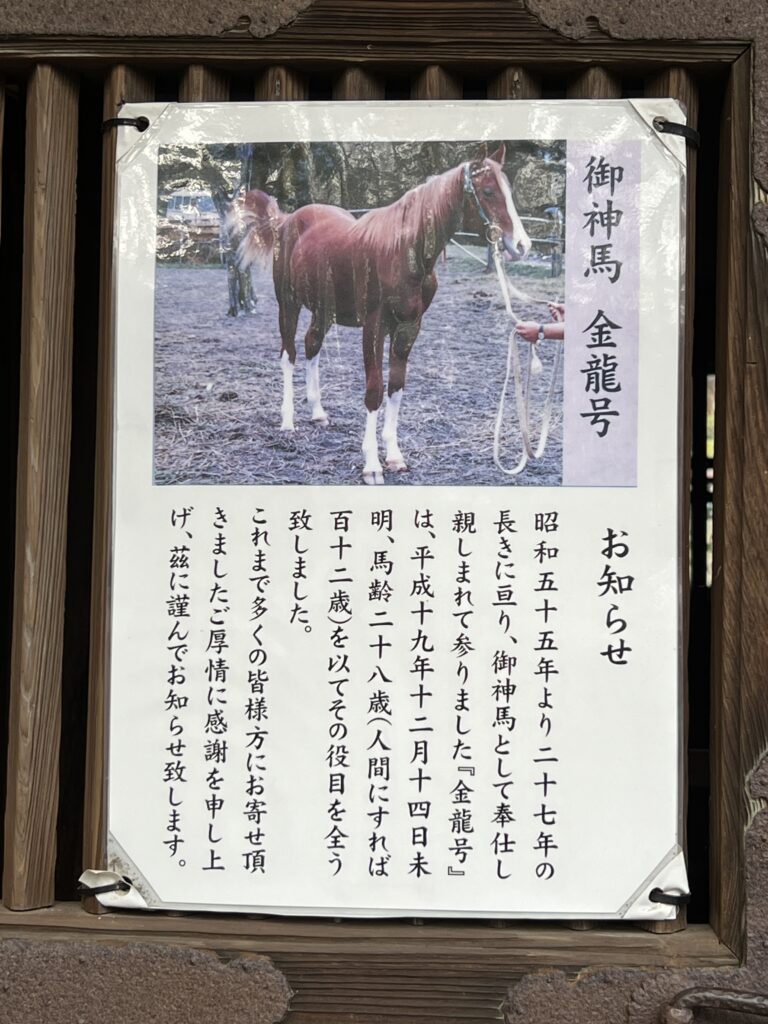 御神馬 金龍号
お知らせ
昭和五十五年より二十七年の
長きに亘り、御神馬として奉仕し
親しまれて参りました『金龍号』
は、平成十九年十二月十四日未
明、馬齢二十八歳(人間にすれば
百十二歳)を以てその役目を全う
致しました。
これまで多くの皆様方にお寄せ頂
きましたご厚情に感謝を申し上
げ、茲に謹んでお知らせ致します。